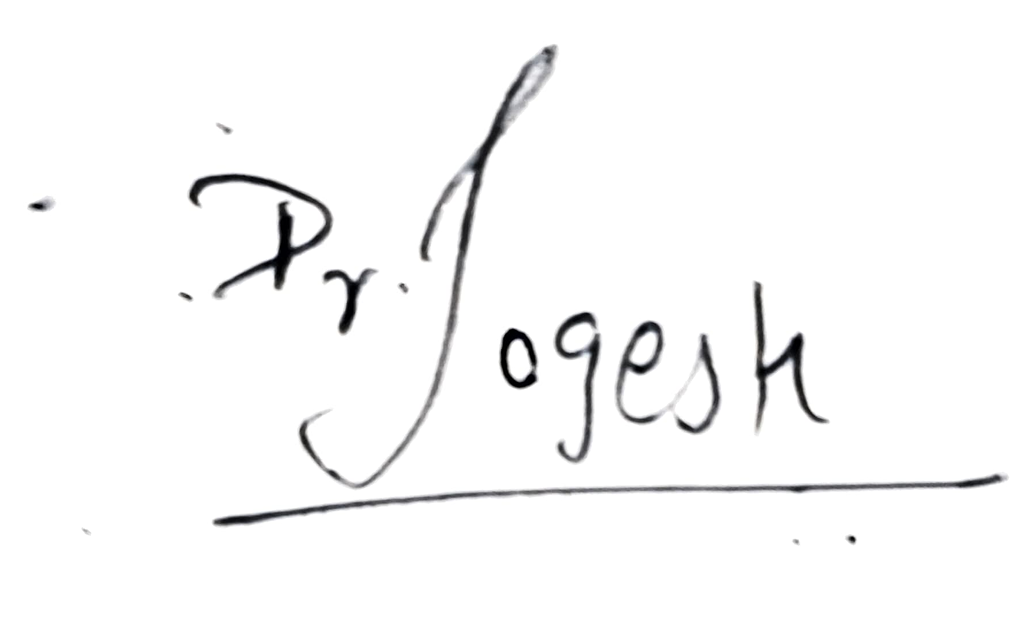 Dr. Jogesh